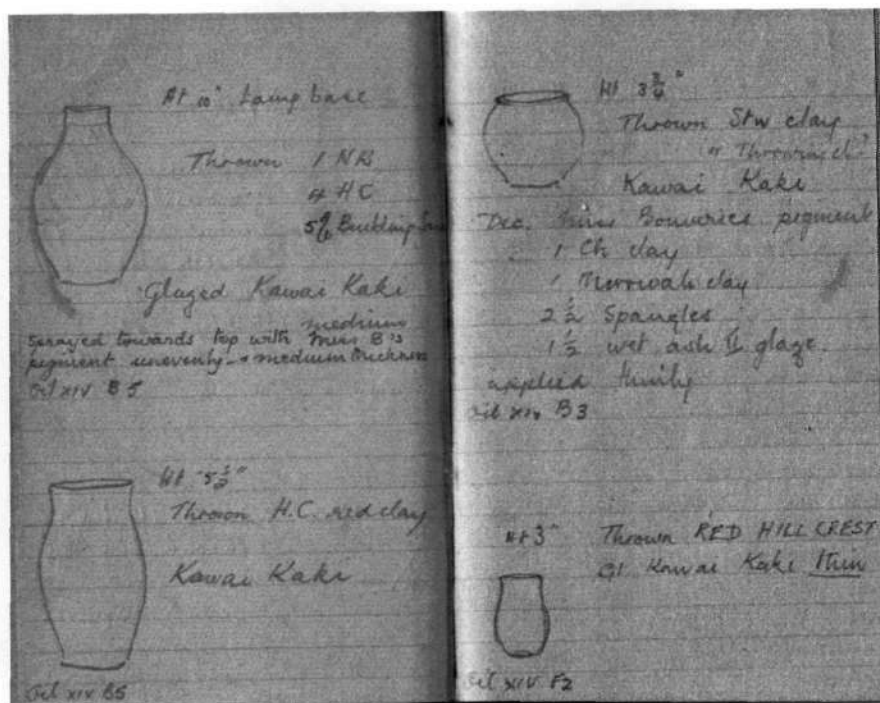 Ht 10" base
Thrown 1 NB
4 HC
5%
Glazed Kawai Kaki
medium
Sprayed towards top with Miss B's
pigment unevenly medium thickness
Oil XIV B5
Ht 5½"
Thrown H.C. red clay
Kawai Kaki
Oil XIV B5
Ht 3¾"
Thrown Stw clay
Kawai Kaki
Dec. Miss Bouveries pigment
1 Ch clay
1 clay
2½ Spangles
1½ wet ash II glaze.
applied thinly
Oil XIV B3
Ht 3" Thrown RED HILL CREST
Gl Kawai Kaki thin
Oil XIV F2